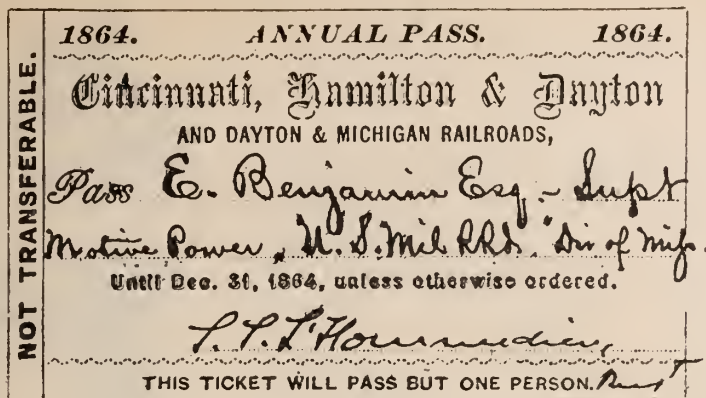 1864. ANNUAL PASS. 1864.
NOT TRANSFERABLE.
Cincinnati, Hamilton & Dayton
AND DAYTON & MICHIGAN RAILROADS,
Pass E. Benjamin Esq - Supt
Motive Power, U. S. Mil RRds. "Div of Miss.
Until Dec. 31, 1864, unless otherwise ordered.
S. S. L'Hommedieu,
THIS TICKET WILL PASS BUT ONE PERSON. Prest